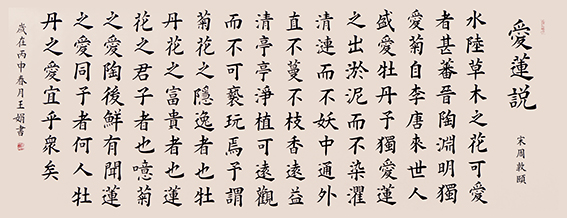 愛蓮説
宋周敦頤
水陸草木之花可愛
者甚蕃晉陶淵明獨
愛菊自李唐來世人
盛愛牡丹予獨愛蓮
之出淤泥而不染濯
清漣而不妖中通外
直不蔓不枝香遠益
清亭亭淨植可遠觀
而不可褻玩焉予謂
菊花之隱逸者也牡
丹花之富貴者也蓮
花之君子者也噫菊
之愛陶後鮮有聞蓮
之愛同予者何人牡
丹之愛宜乎衆矣
歲在丙申春月王娟書